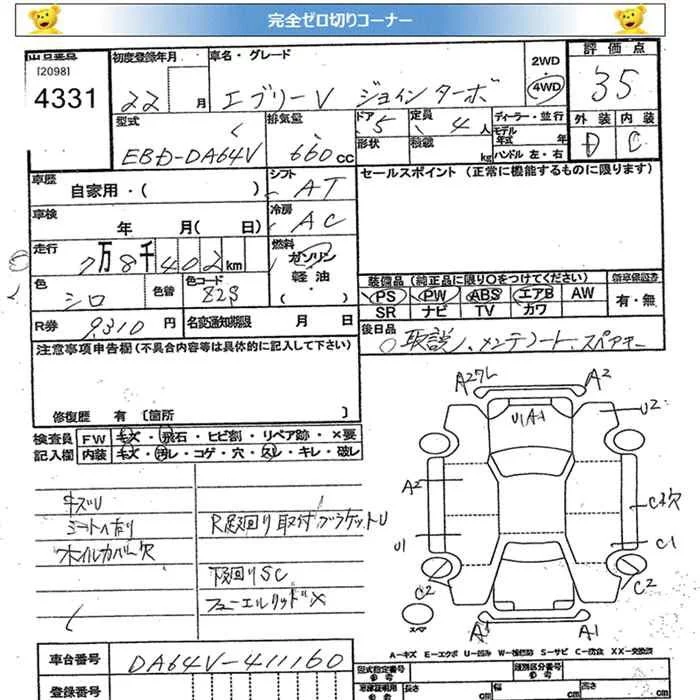 完全ゼロ切りコーナー
出品番号
[2098]
4331
初度登録年月
22 月
車名・グレード
エブリーV ジョイン ターボ
2WD
4WD
評価点
35
型式
EBD-DA64V
排気量
660 cc
ドア 5
形状
定員 4 人
積載 kg
ディーラー・並行
モデル年式 年
ハンドル 左・右
外装 D
内装 C
車歴
自家用・( )
シフト AT
車検
年 月( 日)
冷房 AC
走行
7万8千402 km
燃料
ガソリン
軽油
( )
色 シロ
色替
色コード 82S
R券 9,310 円
名変通知期限 月 日
セールスポイント (正常に機能するものに限ります)
装備品 (純正品に限り○をつけてください)
新車保証書
PS PW ABS エアB AW
SR ナビ TV カワ
有・無
後日品
取説、メンテノート、スペアキー
注意事項申告欄 (不具合内容等は具体的に記入して下さい)
修復歴 有 [箇所 ]
検査員
記入欄
FW キズ・飛石・ヒビ割・リペア跡・×要
内装 キズ・汚レ・コゲ・穴・スレ・キレ・破レ
キズU
シートヘ有り
ホイルカバー欠
R足廻り取付ブラケットU
下廻りSC
フューエルリッド×
A2 A2
U1 A1
U2
A2
U1
C1
C2
C2
スペア
A1
A-キズ E-エクボ U-凹み W-補修跡 S-サビ C-腐食 XX-交換済
車台番号 DA64V-411160
登録番号
型式指定番号
類別区分番号
車庫証明用
長さ cm
幅 cm
高さ cm